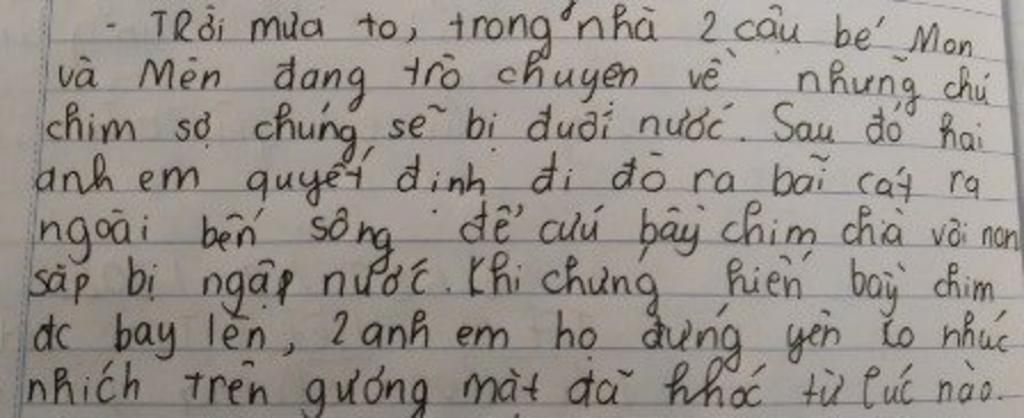 - Trời mưa to, trong nhà 2 cậu bé Mon
và Mên đang trò chuyện về những chú
chim sợ chúng sẽ bị đuối nước. Sau đó hai
anh em quyết định đi đò ra bãi cát ra
ngoài bến sông để cứu bầy chim chìa vôi non
sắp bị ngập nước. Khi chứng kiến bầy chim
đc bay lên, 2 anh em họ đứng yên ko nhúc
nhích trên gương mặt đã khóc từ lúc nào.